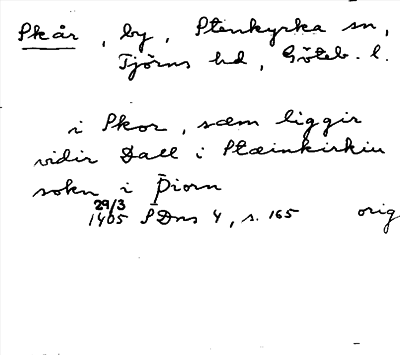 Skår, by, Stenkyrka sn,
Tjörns hd, Göteb. l.
i Skor, sæm liggir
vidir Dall i Stæinkirkiu
sokn i Þiorn
29/3
1405 SDns 4, s. 165 orig